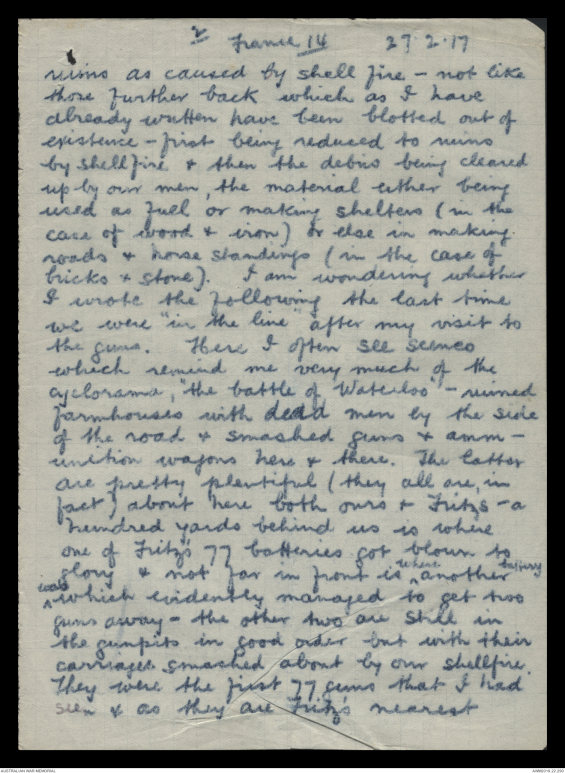 2
France 14 27.2.17
ruins as caused by shell fire - not like
those further back which as I have
already written have been blotted out of
existence - first being reduced to ruins
by shellfire & then the debris being cleared
up by our men, the material either being
used as fuel or making shelters (in the
case of wood & iron) or else in making
roads & horse standings (in the case of
bricks & stone). I am wondering whether
I wrote the following the last time
we were "in the line" after my visit to
the guns. Here I often see scenes
which remind me very much of the
cyclorama, "the battle of Waterloo" - ruined
farmhouses with dead men by the side
of the road & smashed guns & amm-
unition wagons here & there. The latter
are pretty plentiful (they all are, in
fact) about here both ours & Fritz's - a
hundred yards behind us is where
one of Fritz's 77 batteries got blown to
glory & not far in front is where another battery
was which evidently managed to get two
guns away - the other two are still in
the gunpits in good order but with their
carriages smashed about by our shellfire.
They were the first 77 guns that I had
seen & as they are Fritz's nearest
AUSTRALIAN WAR MEMORIAL